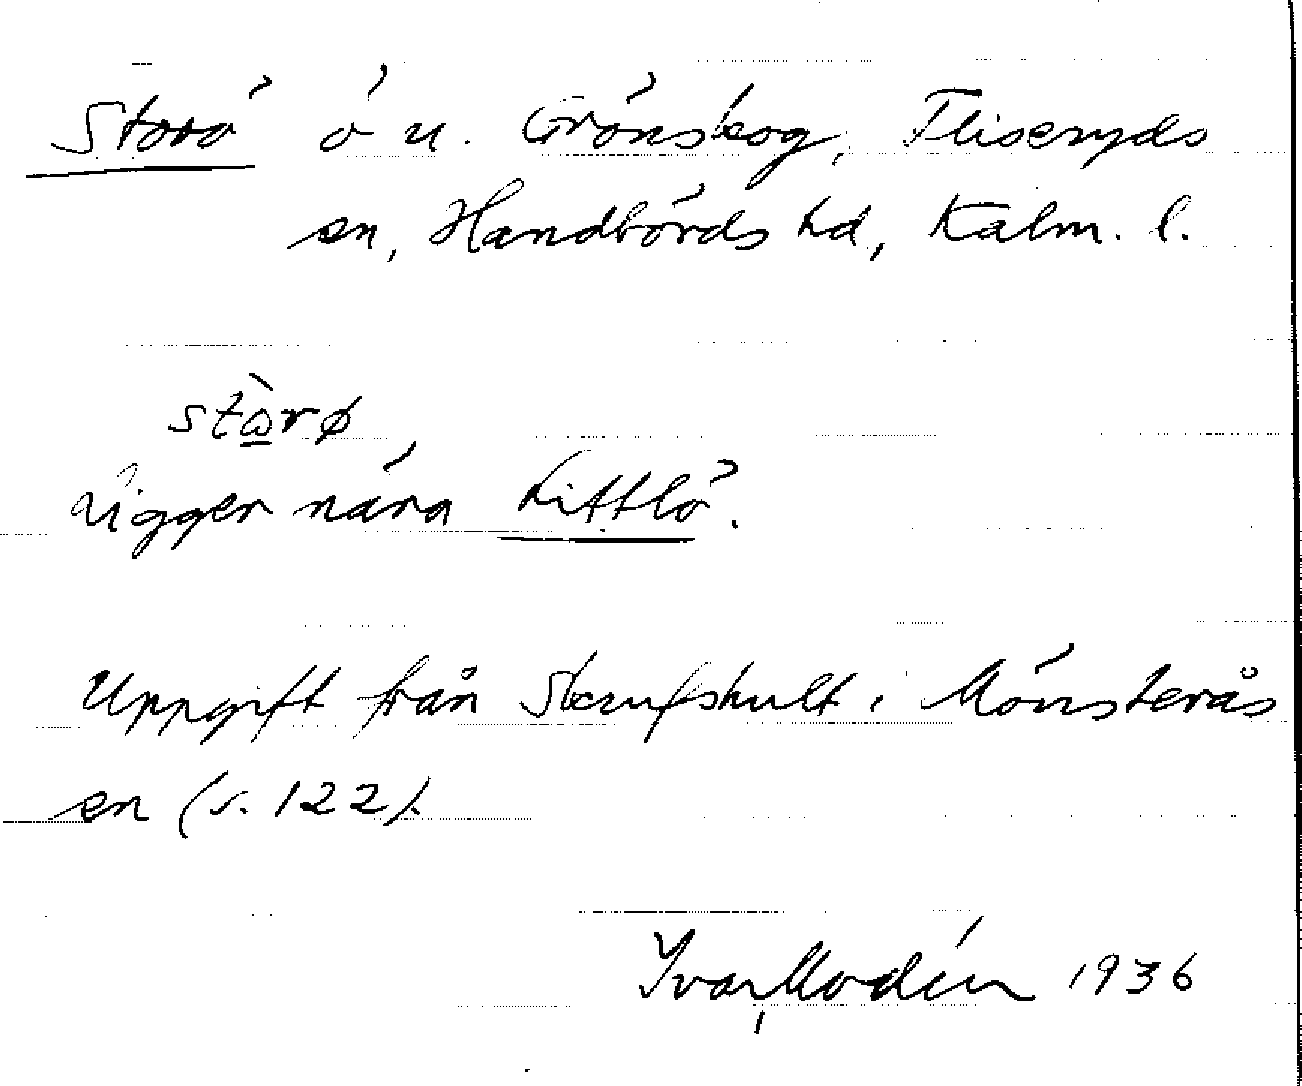 Storö ö u. Grönskog, Fliseryds
sn, Handbörds hd, Kalm. l.
stὼ̲rø
Ligger nära Littlö.
Uppgift från Skrufshult i Mönsterås
sn (s. 122).
Ivar Modéer 1936